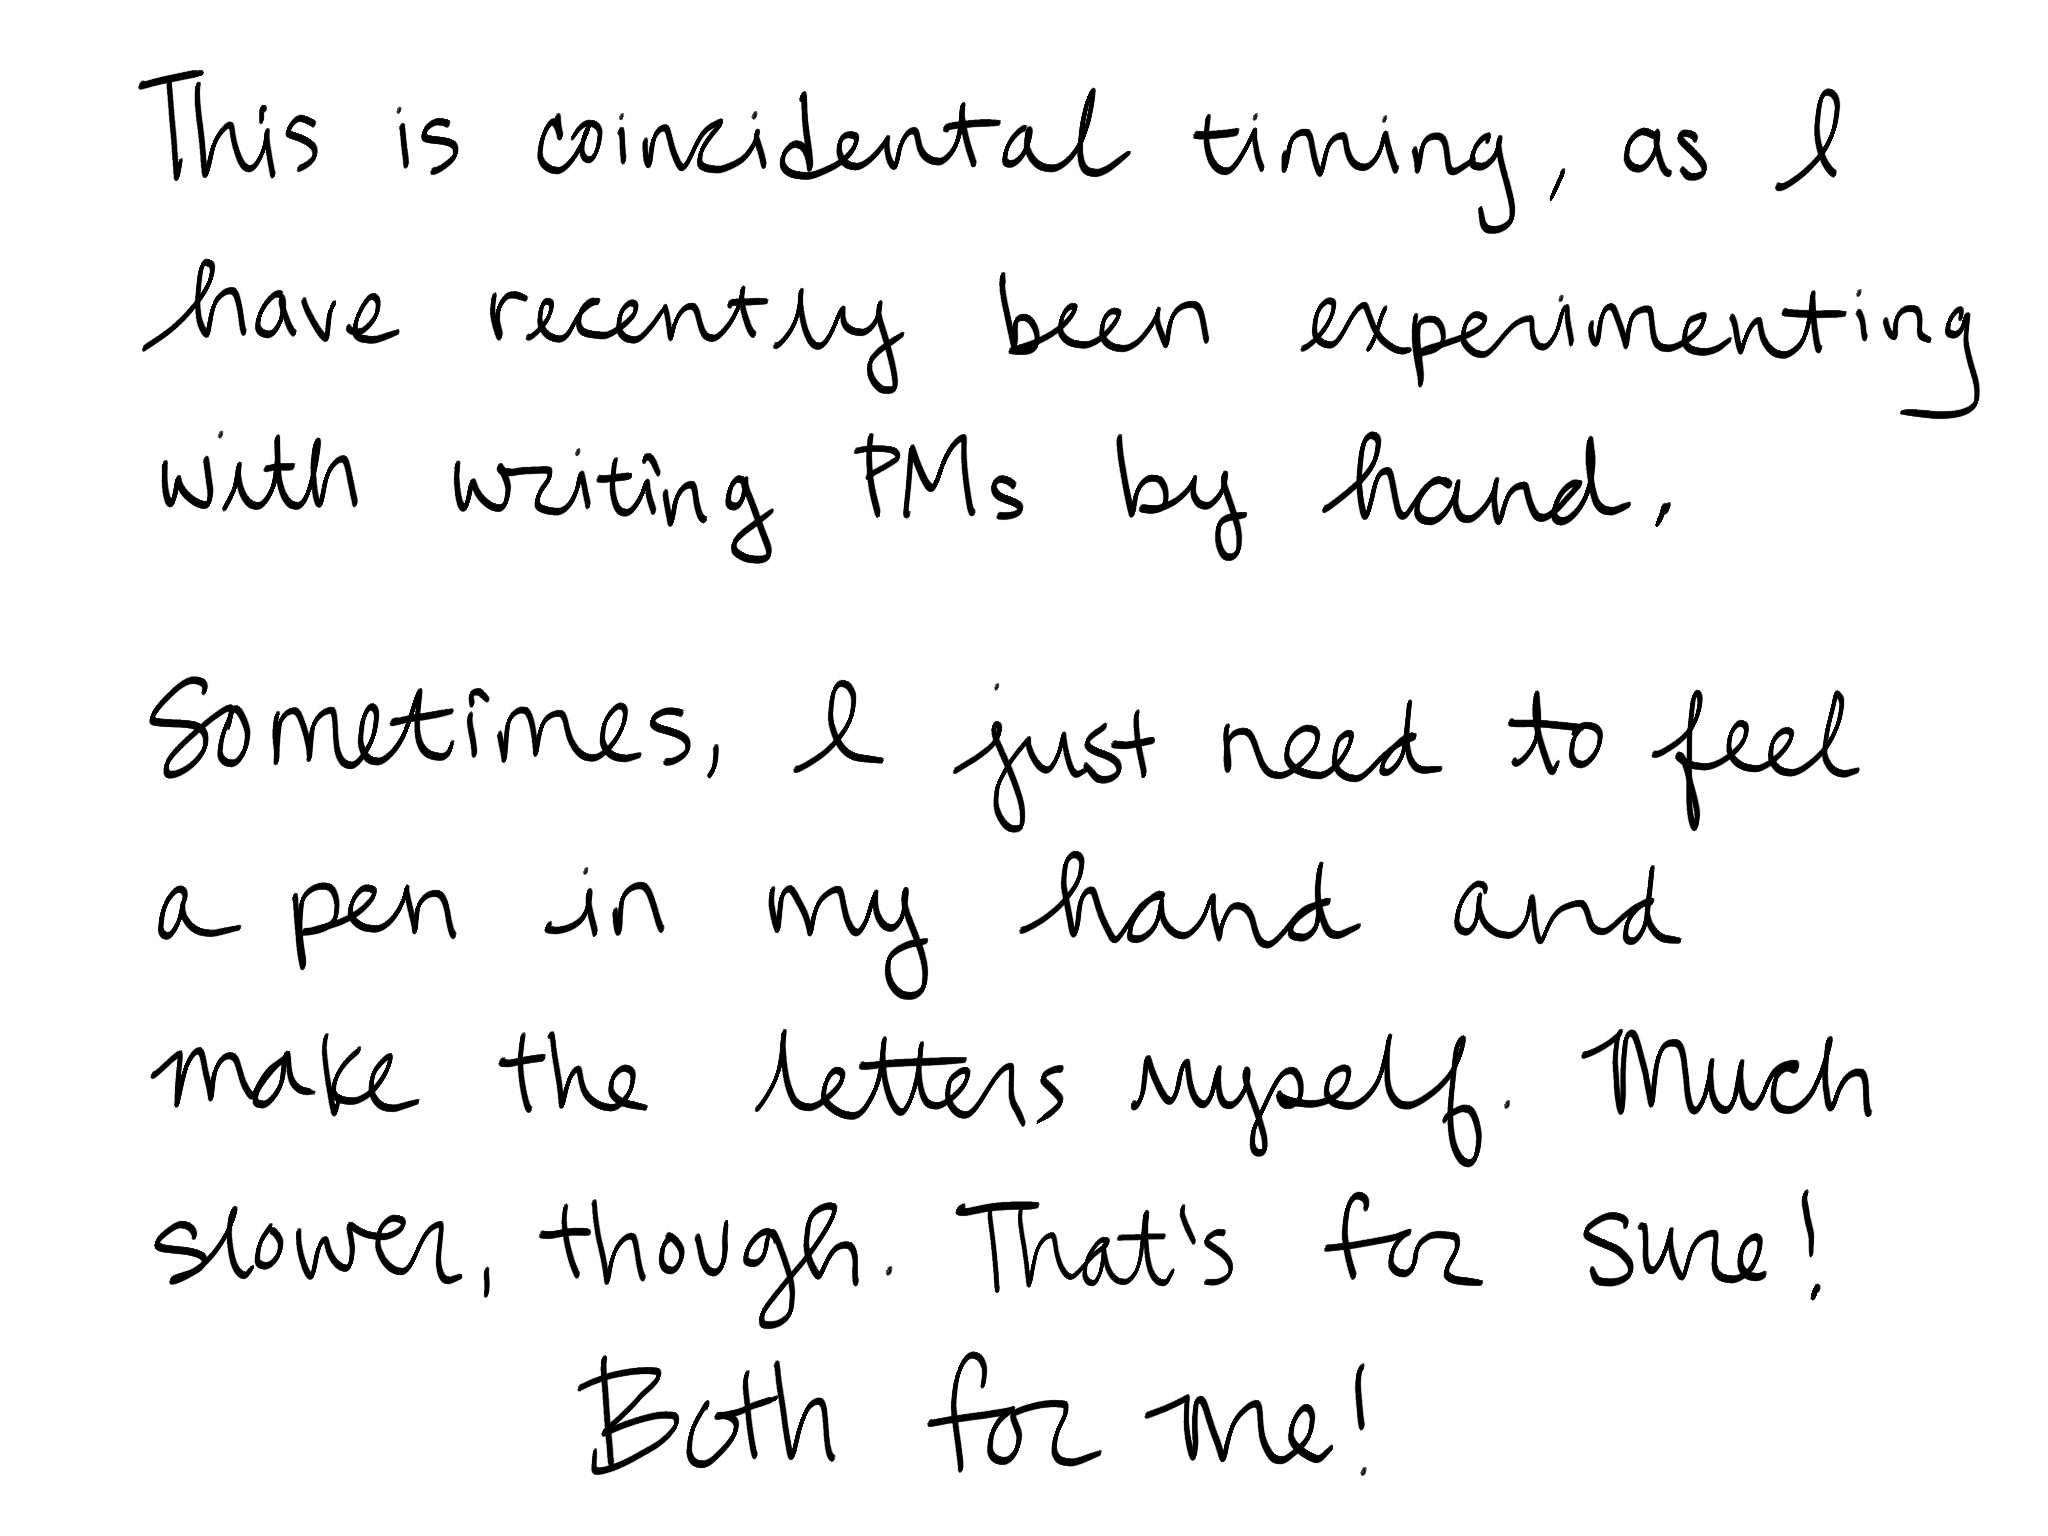 This is coincidental timing, as I
have recently been experimenting
with writing PMs by hand.
Sometimes, I just need to feel
a pen in my hand and
make the letters myself. Much
slower, though. That's for sure!
Both for me!